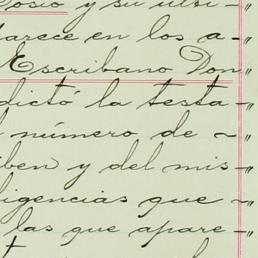 osio y su ulti-
parece en los a-"
Escribano Don "
dictó la testa-"
l número de -"
iben y del mis-"
ligencias que -"
las que apare-"